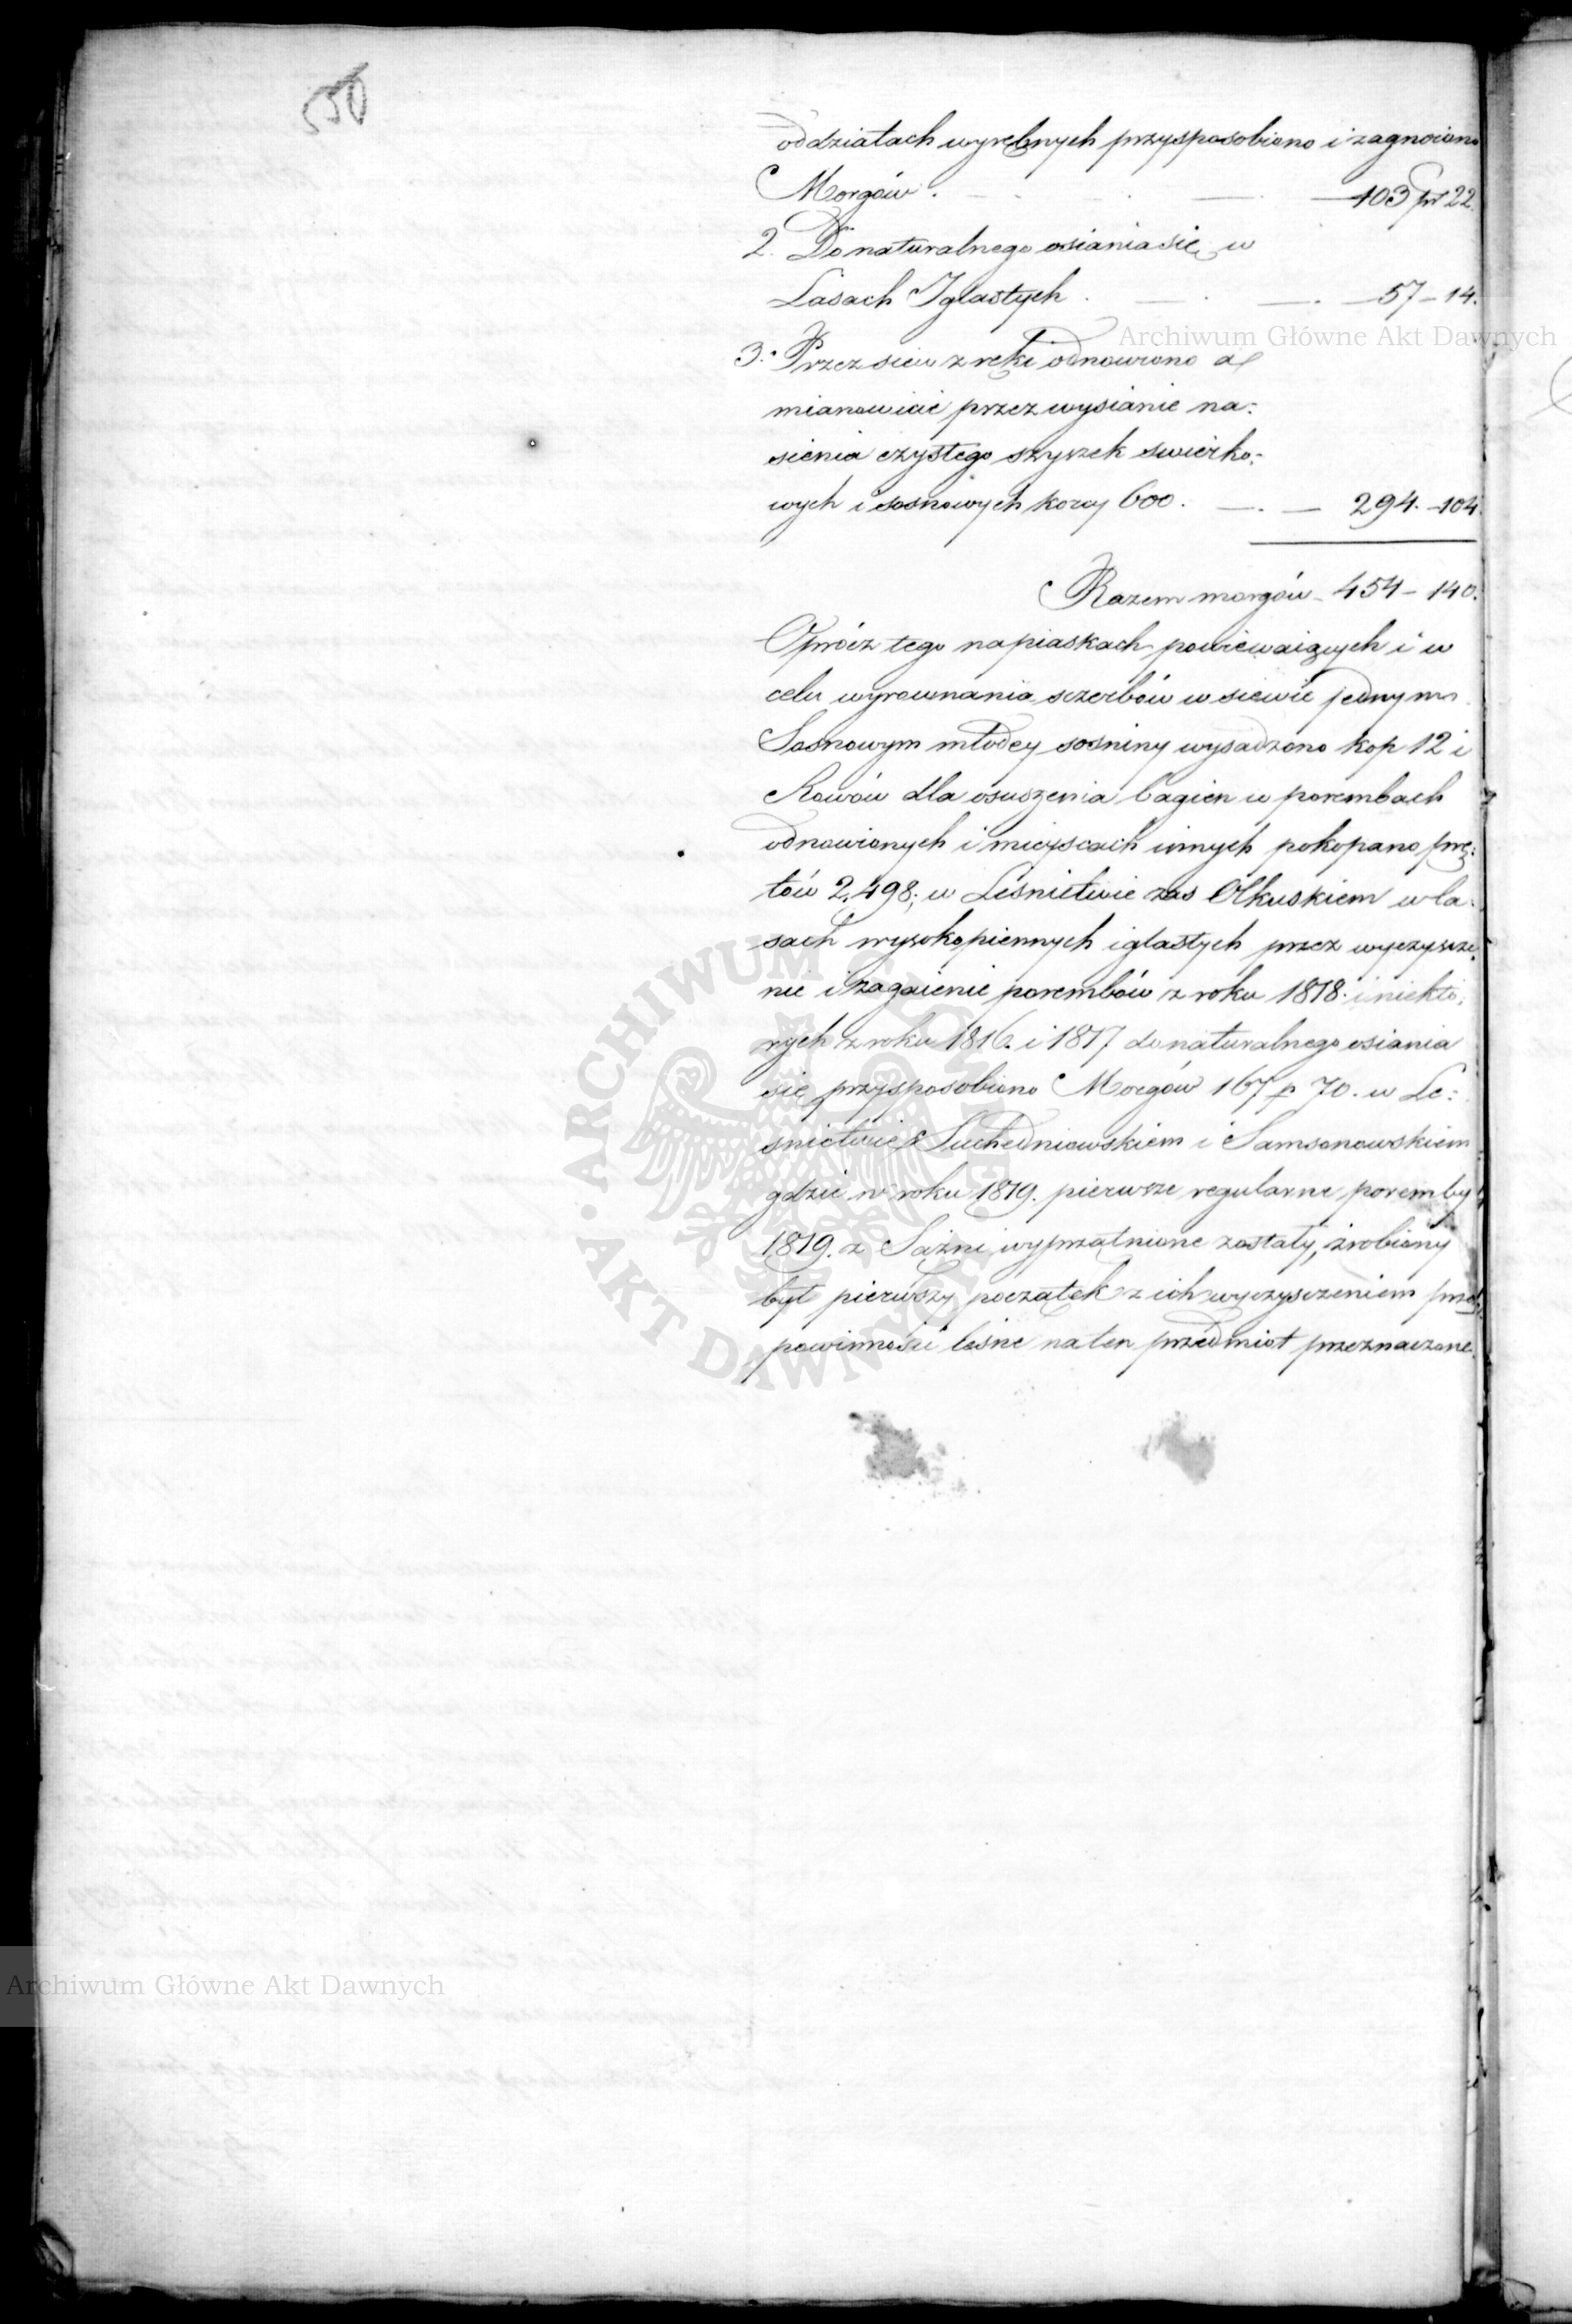 550
oddziałach wyrębnych przysposobiono i zagnoiono
Morgów . — . — 103 pr 22.
2. Do naturalnego osiania się w
Lasach Iglastych . — . — . — 57 — 14.
3. Przez siew z ręki odnowiono a
mianowicie przez wysianie na:
sienia czystego szyszek swierko:
wych i sosnowych korcy 600 . — . — 294. — 104.
Razem morgów — 454 — 140.
Oprócz tego na piaskach powiewaiących i w
celu wyrownania sczerbów w siewie jednym
Sosnowym młodey sosniny wysadzono kop 12 i
Rowów dla osuszenia bagien w porembach
odnowionych i mieyscach innych pokopano prę:
tów 2,498; w Leśnictwie zas Olkuskiem w la:
sach wysokopiennych iglastych przez wyczyscze:
nie i zagaienie porembów z roku 1818. i niektó:
rych z roku 1816. i 1817 do naturalnego osiania
się przysposobiono Morgów 167 p 70. w Le:
snictwie Suchedniowskiem i Samsonowskiem
gdzie w roku 1819. pierwsze regularne poremby
1819. z Sążni wyprzątnione zostały, zrobiony
był pierwszy początek z ich wyczysczeniem przez
powinności leśne na ten przedmiot przeznaczone.
Archiwum Główne Akt Dawnych
ARCHIWUM GŁÓWNE AKT DAWNYCH
Archiwum Główne Akt Dawnych